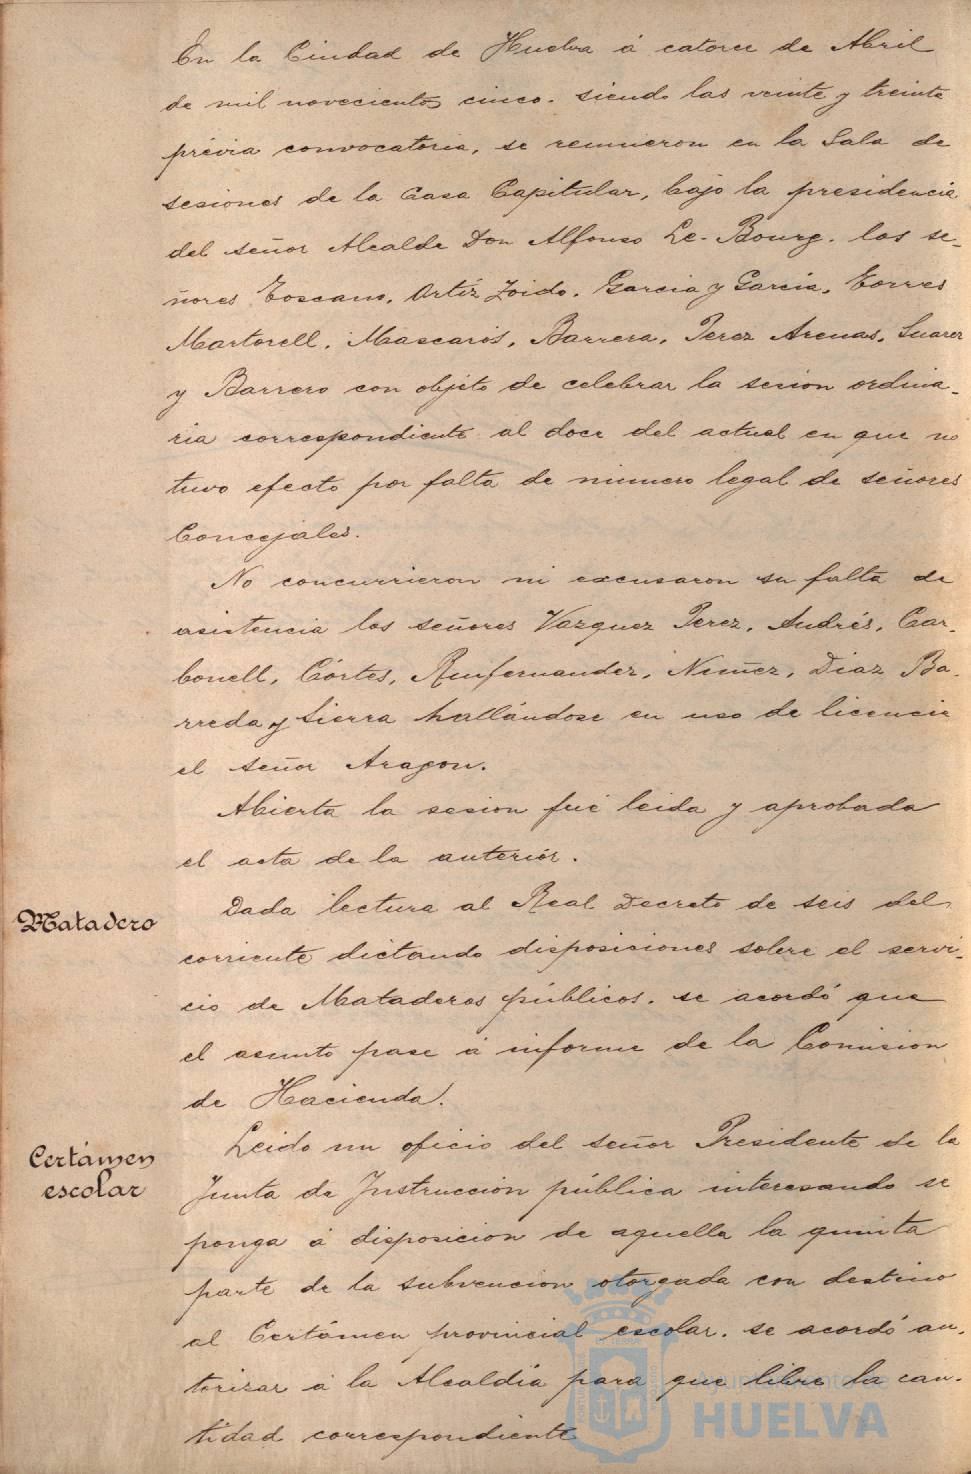 En la Ciudad de Huelva á catorce de Abril
de mil novecientos cinco. siendo las veinte y treinta
prévia convocatoria, se reunieron en la Sala de
sesiones de la Casa Capitular, bajo la presidencia
del señor Alcalde Don Alfonso Le-Bourg. los se-
ñores Toscano, Ortíz Zoido. Garcia y García, Torres
Martorell, Mascarós, Barrera, Perez Arenas, Suarez
y Barrero con objeto de celebrar la sesion ordina-
ria correspondiente al doce del actual en que no
tuvo efecto por falta de número legal de señores
Concejales.
No concurrieron ni excusaron su falta de
asistencia los señores Vazquez Perez, Andrés, Car-
bonell, Córtes, Runfernandez, Nuñez, Diaz Ba-
rreda y Sierra hallándose en uso de licencia
el señor Aragon.
Abierta la sesion fué leida y aprobada
el acta de la anteriór.
Matadero
Dada lectura al Real Decreto de seis del
corriente dictando disposiciones sobre el servi-
cio de Mataderos públicos. se acordó que
el asunto pase á informe de la Comision
de Hacienda.
Certámen
escolar
Leido un oficio del señor Presidente de la
Junta de Instruccion pública interesando se
ponga á disposicion de aquella la quinta
parte de la subvencion otorgada con destino
al Certámen provincial escolar. se acordó au-
torizar á la Alcaldía para que libre la can-
tidad correspondiente
Ayuntamiento de
HUELVA